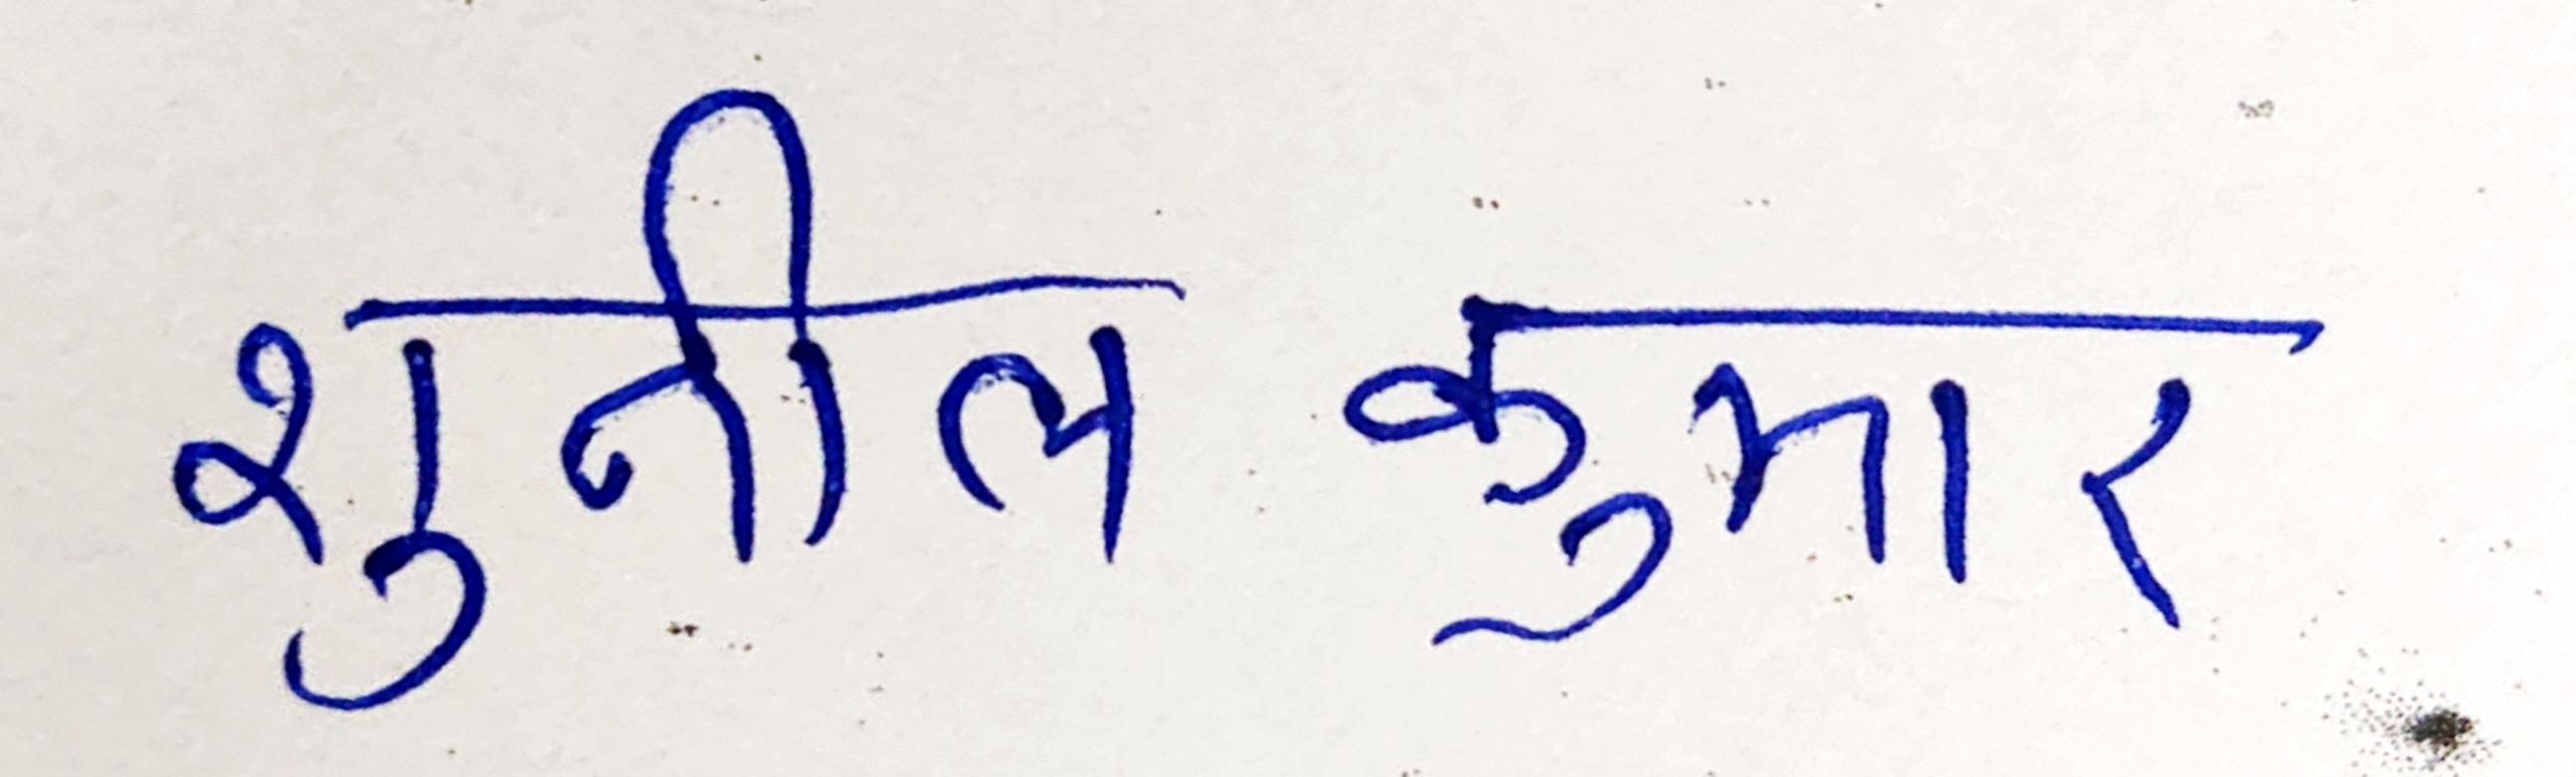 शुनील कुमार